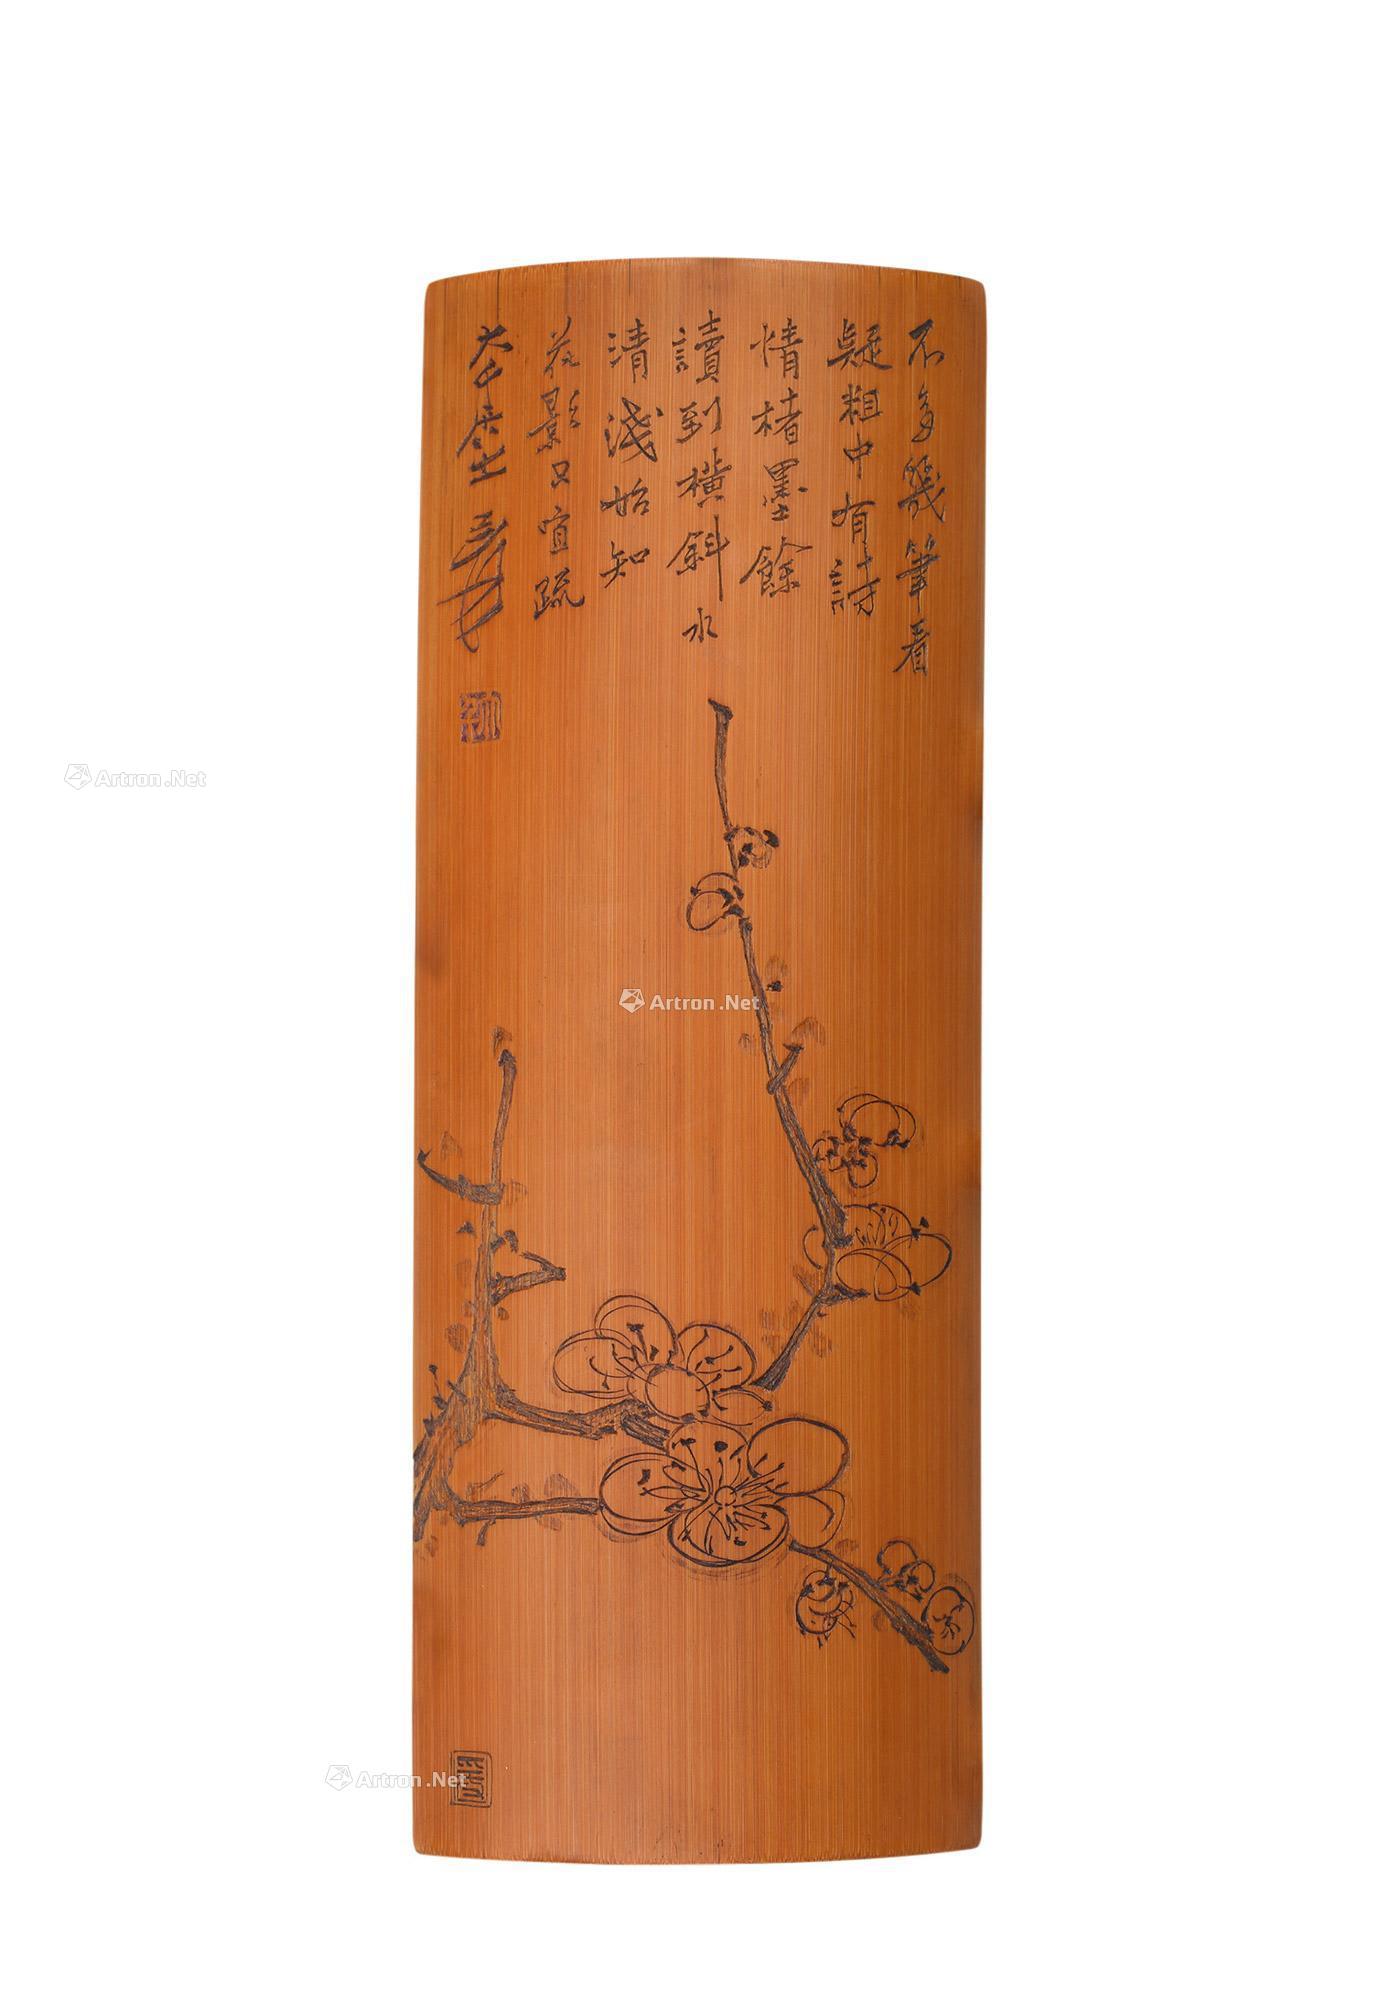 不多幾筆看
疑粗中有詩
情楮墨餘
讀到橫斜水
清淺始知
花影只宜疏
大千居士 爰
Artron.Net
Artron.Net
Artron.Net